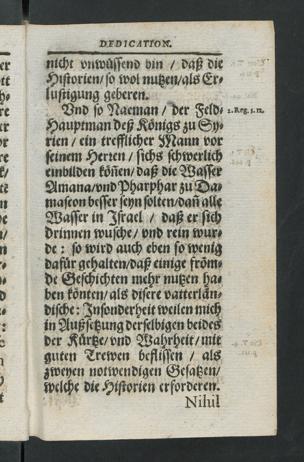 DEDICATION.
nicht vnwüssend bin / daß die
Historien/so wol nutzen/als Er-
lustigung geberen.
Vnd so Naeman / der Feld-
2. Reg. 5. 12.
Hauptman deß Königs zu Sy-
rien / ein trefflicher Mann vor
seinem Herren / sichs schwerlich
einbilden köñen/daß die Wasser
Amana/vnd Pharphar zu Da-
mascon besser seyn solten/dañ alle
Wasser in Israel / daß er sich
drinnen wusche/ vnd rein wur-
de: so wird auch eben so wenig
dafür gehalten/daß einige fröm-
de Geschichten mehr nutzen ha-
ben könten/als disere vatterlän-
dische: Insonderheit weilen mich
in Außsetzung derselbigen beides
der Kürtze/vnd Wahrheit/mit
guten Trewen beflissen / als
zweyen notwendigen Gesatzen/
welche die Historien erforderen.
Nihil